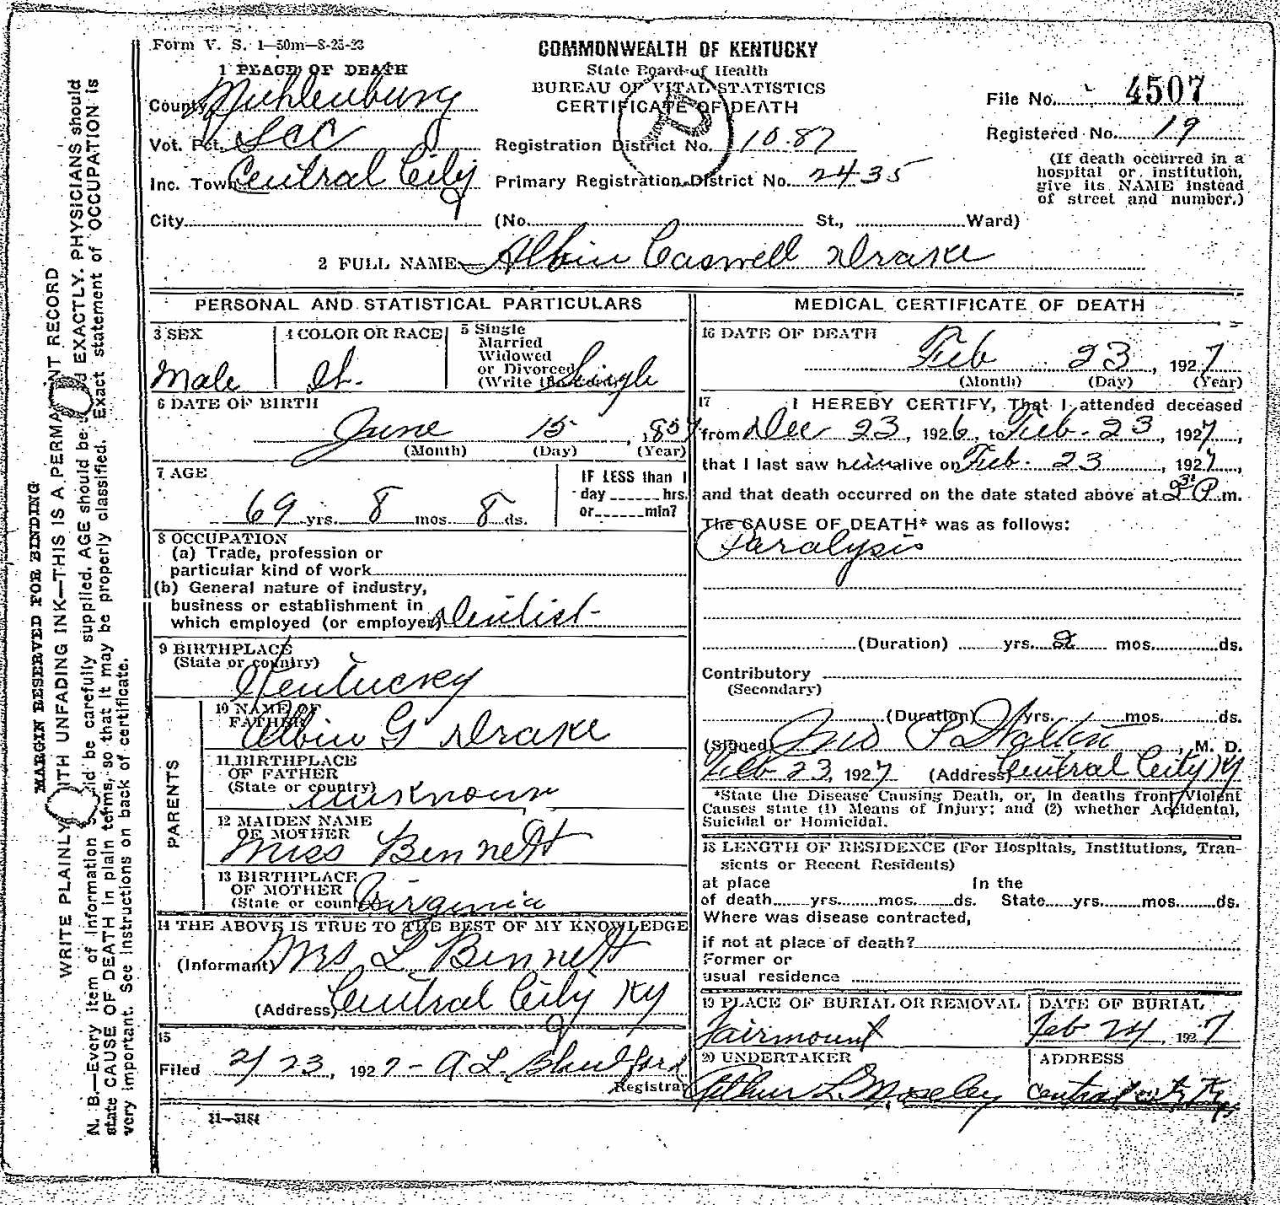 Form V. S. 1—50m—8-25-23
COMMONWEALTH OF KENTUCKY
State Board of Health
BUREAU OF VITAL STATISTICS
CERTIFICATE OF DEATH
1 PLACE OF DEATH
County Muhlenburg
Vot. Pct.
Inc. Town Central City
City (No. St., Ward)
Registration District No. 10.87
Primary Registration District No. 2435
File No. 4507
Registered No. 19
(If death occurred in a
hospital or institution,
give its NAME instead
of street and number.)
2 FULL NAME Albin Caswell Drake
PERSONAL AND STATISTICAL PARTICULARS
3 SEX
Male
4 COLOR OR RACE
5 Single
Married
Widowed
or Divorced
(Write the Single
6 DATE OF BIRTH
June 15, 1857
(Month) (Day) (Year)
7 AGE
69 yrs. 8 mos. 8 ds.
IF LESS than 1
day ...... hrs.
or ...... min?
8 OCCUPATION
(a) Trade, profession or
particular kind of work
(b) General nature of industry,
business or establishment in
which employed (or employer) Dentist
9 BIRTHPLACE
(State or country)
Kentucky
PARENTS
10 NAME OF
FATHER
Albin G Drake
11 BIRTHPLACE
OF FATHER
(State or country)
unknown
12 MAIDEN NAME
OF MOTHER
Miss Bennett
13 BIRTHPLACE
OF MOTHER
(State or country) Virginia
14 THE ABOVE IS TRUE TO THE BEST OF MY KNOWLEDGE
(Informant) Mrs L Bennett
(Address) Central City Ky
15
Filed 2/23, 1927 A L
Registrar
11—3184
MEDICAL CERTIFICATE OF DEATH
16 DATE OF DEATH
Feb 23, 1927
(Month) (Day) (Year)
17 I HEREBY CERTIFY, That I attended deceased
from Dec 23, 1926, to Feb. 23, 1927,
that I last saw him alive on Feb. 23, 1927,
and that death occurred on the date stated above at P. m.
The CAUSE OF DEATH* was as follows:
Paralysis
(Duration) yrs. 2 mos. ds.
Contributory
(Secondary)
(Duration) yrs. mos. ds.
(Signed) Jno , M. D.
Feb 23, 1927 (Address) Central City Ky
*State the Disease Causing Death, or, in deaths from Violent
Causes state (1) Means of Injury; and (2) whether Accidental,
Suicidal or Homicidal.
18 LENGTH OF RESIDENCE (For Hospitals, Institutions, Tran-
sients or Recent Residents)
at place In the
of death yrs. mos. ds. State yrs. mos. ds.
Where was disease contracted,
if not at place of death?
Former or
usual residence
19 PLACE OF BURIAL OR REMOVAL
Fairmount
DATE OF BURIAL
Feb 24, 1927
20 UNDERTAKER
Arthur L. Moseley
ADDRESS
Central City Ky
MARGIN RESERVED FOR BINDING
WRITE PLAINLY WITH UNFADING INK—THIS IS A PERMANENT RECORD
N. B.—Every item of information should be carefully supplied. AGE should be stated EXACTLY. PHYSICIANS should
state CAUSE OF DEATH in plain terms, so that it may be properly classified. Exact statement of OCCUPATION is
very important. See instructions on back of certificate.